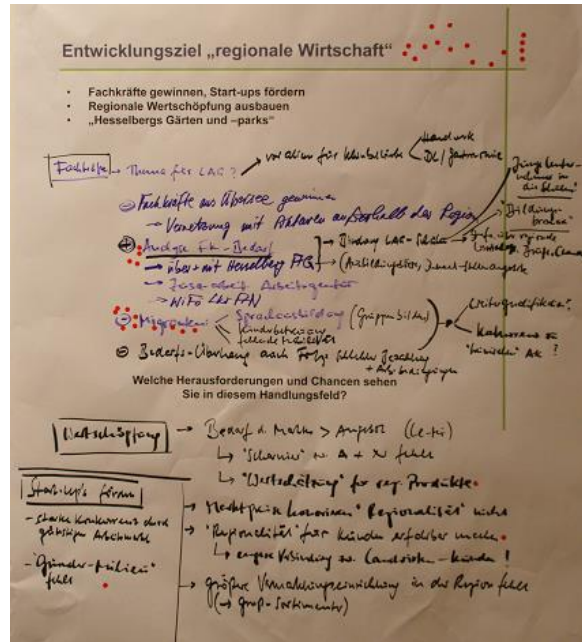 Entwicklungsziel „regionale Wirtschaft“
• Fachkräfte gewinnen, Start-ups fördern
• Regionale Wertschöpfung ausbauen
• „Hesselbergs Gärten und –parks“
Fachkräfte → Thema für LAG?
vor allem für Kleinbetriebe
Handwerk
DL/Gastronomie
⊖ Fachkräfte aus Übersee gewinnen
→ Vernetzung mit Aktoren außerhalb der Region
"Bildungs-
⊕ Analyse FK-Bedarf
→ Bindung LAG-Schulen
→ über + mit Hesselberg AG
→ Zusarbeit Arbeitsagentur
→ WiFo LKr AN
⊖ Migranten
Sprachausbildung (Gruppenbilder)
Kinderbetreuung
Konkurrenz zu
⊖ Bedarfs-Überhang auch Folge schlechter Bezahlung
+ Arbeitsbedingungen
Welche Herausforderungen und Chancen sehen
Sie in diesem Handlungsfeld?
Wertschöpfung → Bedarf d. Marktes > Angebot
↳ "Scharnier" zw. A + N fehlt
↳ "Wertschätzung" für reg. Produkte
Start-ups fördern
- starke Konkurrenz durch
günstigen Arbeitsmarkt
- "Gründer-Milieu"
fehlt
→ Marktpreise honorieren "Regionalität" nicht
→ "Regionalität" für Kunden erfahrbar machen
↳ engere Verbindung zw. Landwirten – Kunden!
→ größere Vermahlungseinrichtung in der Region fehlt
(→ Groß-Sortimente)